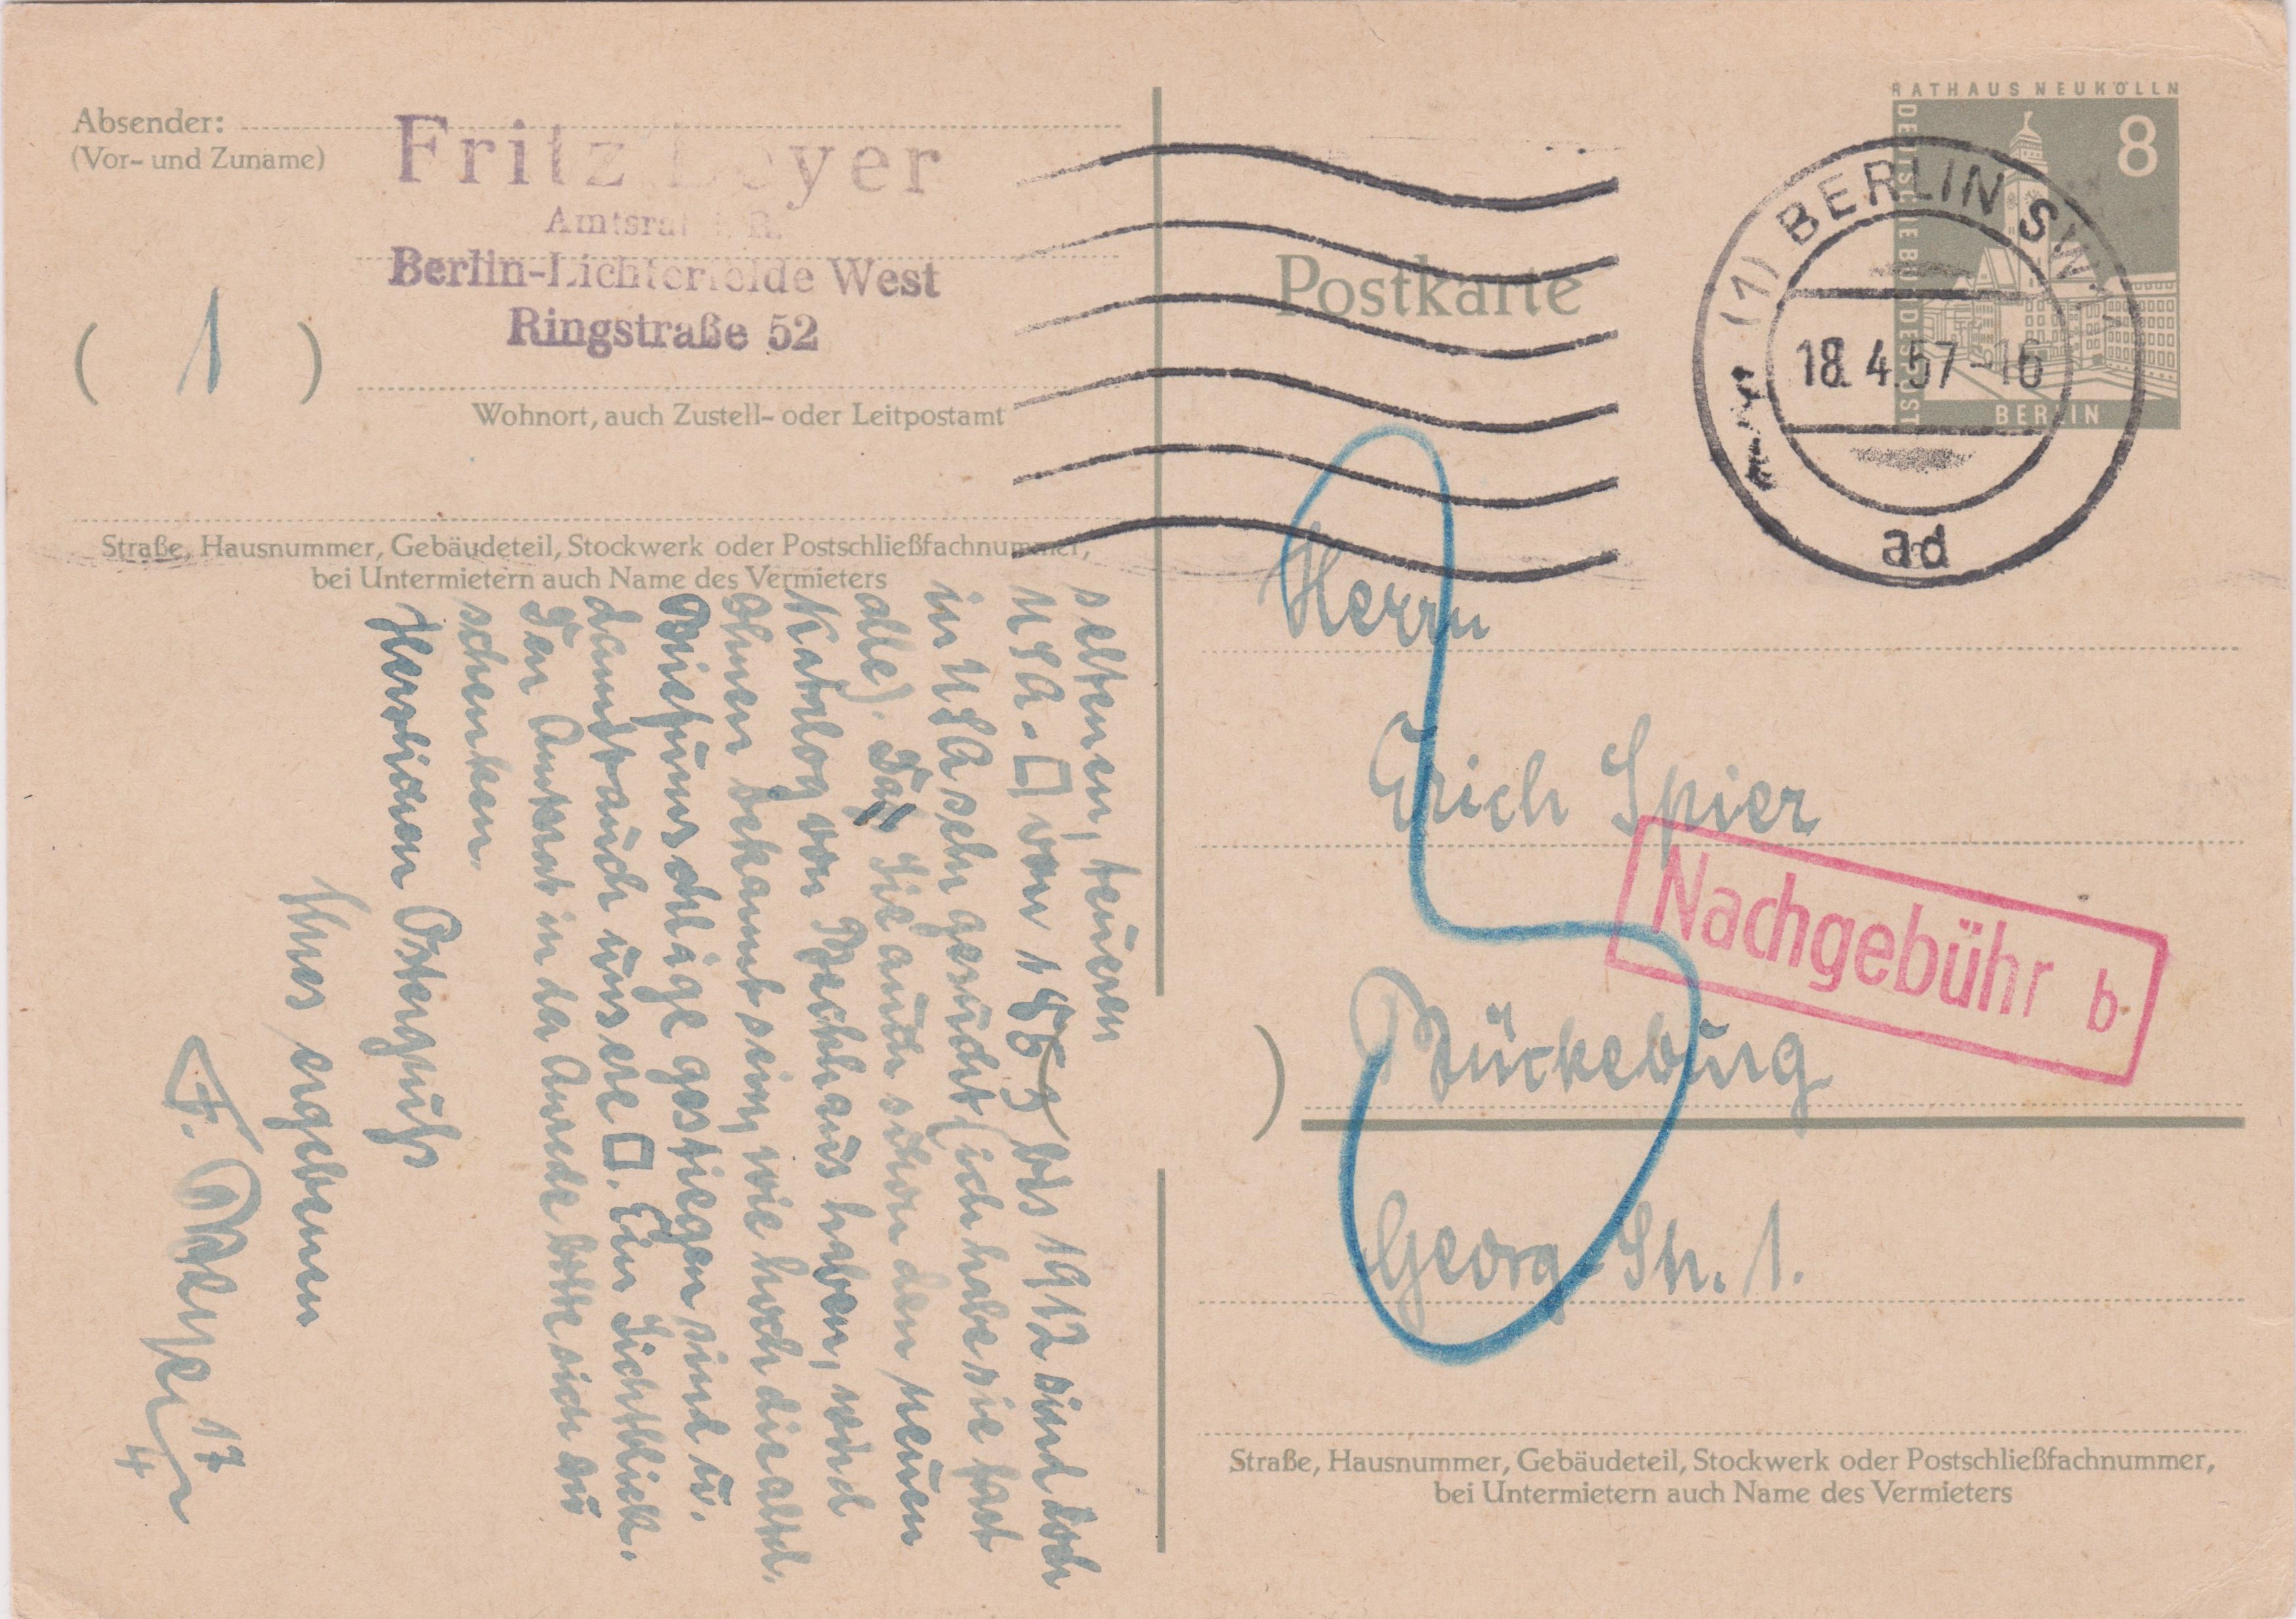 Absender:
(Vor- und Zuname)
Fritz Beyer
Amtsrat i. R.
Berlin-Lichterfelde West
Ringstraße 52
( 1 )
Wohnort, auch Zustell- oder Leitpostamt
Straße, Hausnummer, Gebäudeteil, Stockwerk oder Postschließfachnummer,
bei Untermietern auch Name des Vermieters
seltenen, teueren
USA-□ von 1853 bis 1912 sind doch
in USA sehr gesucht (ich habe sie fast
alle). Daß Sie auch schon den neuen
Katalog von Beckhaus haben, wird
Ihnen bekannt sein, wie hoch die altd.
Briefumschläge gestiegen sind u.
damit auch unsere □. Ein Lichtblick.
Den Amtsrat in der Anrede bitte sich zu
schenken.
Herzlichen Ostergruß
Ihres ergebenen
F. Beyer
17
4
RATHAUS NEUKÖLLN
DEUTSCHE BUNDESPOST
8
BERLIN
(1) BERLIN SW
18.4.57-16
ad
Postkarte
Herrn
Erich Spier
Nachgebühr b
) Bückeburg
Georg-Str. 1.
Straße, Hausnummer, Gebäudeteil, Stockwerk oder Postschließfachnummer,
bei Untermietern auch Name des Vermieters